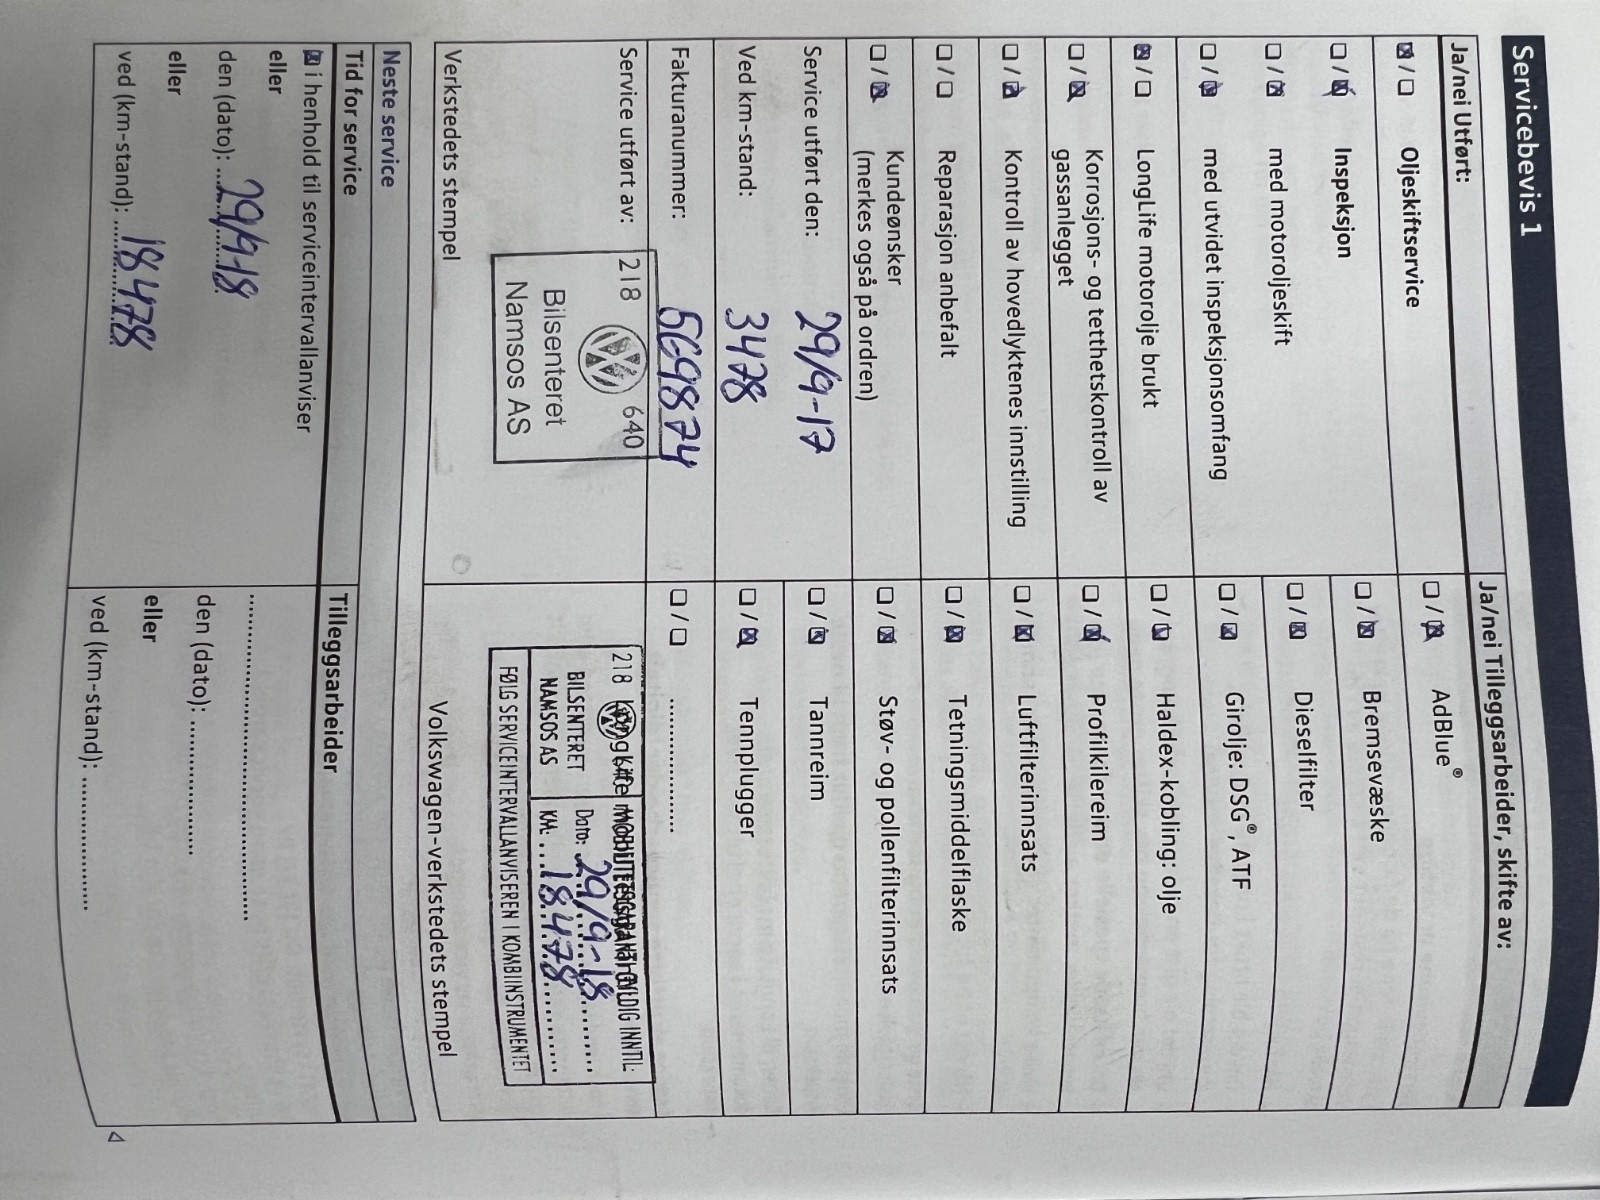 Servicebevis 1
Ja/nei Utført:
☒ / ☐ Oljeskiftservice
☐ / ☒ Inspeksjon
☐ / ☒ med motoroljeskift
☐ / ☒ med utvidet inspeksjonsomfang
☒ / ☐ LongLife motorolje brukt
☐ / ☒ Korrosjons- og tetthetskontroll av
gassanlegget
☐ / ☒ Kontroll av hovedlyktenes innstilling
☐ / ☐ Reparasjon anbefalt
☐ / ☒ Kundeønsker
(merkes også på ordren)
Service utført den: 29/9-17
Ved km-stand: 3478
Fakturanummer: 5698874
Service utført av:
218 640
Bilsenteret
Namsos AS
Verkstedets stempel
Ja/nei Tilleggsarbeider, skifte av:
☐ / ☒ AdBlue®
☐ / ☒ Bremsevæske
☐ / ☒ Dieselfilter
☐ / ☒ Girolje: DSG®, ATF
☐ / ☒ Haldex-kobling: olje
☐ / ☒ Profilkilereim
☐ / ☒ Luftfilterinnsats
☐ / ☒ Tetningsmiddelflaske
☐ / ☒ Støv- og pollenfilterinnsats
☐ / ☒ Tannreim
☐ / ☒ Tennplugger
☐ / ☐ ....................
218 MOBILITETSGARANTI GYLDIG INNTIL:
BILSENTERET
NAMSOS AS
Dato: 29/9-18
KM: 18478
FØLG SERVICEINTERVALLANVISEREN I KOMBINSTRUMENTET
Volkswagen-verkstedets stempel
Neste service
Tid for service
☒ i henhold til serviceintervallanviser
eller
den (dato): 29/9-18
eller
ved (km-stand): 18478
Tilleggsarbeider
..................................................
den (dato): ....................
eller
ved (km-stand): ....................